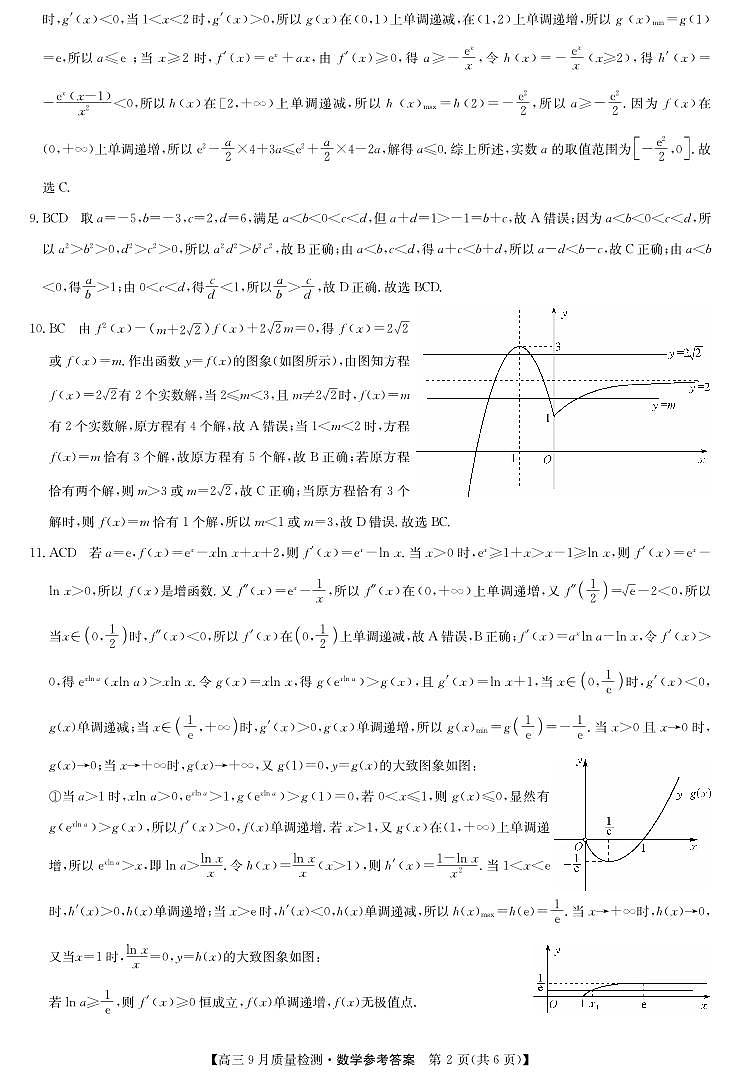 时,g′(x)<0,当1<x<2时,g′(x)>0,所以g(x)在(0,1)上单调递减,在(1,2)上单调递增,所以g(x)min=g(1)
=e,所以a≤e;当x≥2时,f′(x)=e^x+ax,由f′(x)≥0,得a≥-e^x/x,令h(x)=-e^x/x(x≥2),得h′(x)=
-e^x(x-1)/x²<0,所以h(x)在[2,+∞)上单调递减,所以h(x)max=h(2)=-e²/2,所以a≥-e²/2.因为f(x)在
(0,+∞)上单调递增,所以e²-a/2×4+3a≤e²+a/2×4-2a,解得a≤0.综上所述,实数a的取值范围为[-e²/2,0].故
选C.
9.BCD 取a=-5,b=-3,c=2,d=6,满足a<b<0<c<d,但a+d=1>-1=b+c,故A错误;因为a<b<0<c<d,所
以a²>b²>0,d²>c²>0,所以a²d²>b²c²,故B正确;由a<b,c<d,得a+c<b+d,所以a-d<b-c,故C正确;由a<b
<0,得a/b>1;由0<c<d,得c/d<1,所以a/b>c/d,故D正确.故选BCD.
10.BC 由f²(x)-(m+2√2)f(x)+2√2m=0,得f(x)=2√2
或f(x)=m.作出函数y=f(x)的图象(如图所示),由图知方程
f(x)=2√2有2个实数解,当2≤m<3,且m≠2√2时,f(x)=m
有2个实数解,原方程有4个解,故A错误;当1<m<2时,方程
f(x)=m恰有3个解,故原方程有5个解,故B正确;若原方程
恰有两个解,则m>3或m=2√2,故C正确;当原方程恰有3个
解时,则f(x)=m恰有1个解,所以m<1或m=3,故D错误.故选BC.
y
3
y=2√2
y=2
y=m
1
O
x
11.ACD 若a=e,f(x)=e^x-xln x+x+2,则f′(x)=e^x-ln x.当x>0时,e^x≥1+x>x-1≥ln x,则f′(x)=e^x-
ln x>0,所以f(x)是增函数.又f″(x)=e^x-1/x,所以f″(x)在(0,+∞)上单调递增,又f″(1/2)=√e-2<0,所以
当x∈(0,1/2)时,f″(x)<0,所以f′(x)在(0,1/2)上单调递减,故A错误,B正确;f′(x)=a^xln a-ln x,令f′(x)>
0,得e^(xln a)(xln a)>xln x.令g(x)=xln x,得g(e^(xln a))>g(x),且g′(x)=ln x+1,当x∈(0,1/e)时,g′(x)<0,
g(x)单调递减;当x∈(1/e,+∞)时,g′(x)>0,g(x)单调递增,所以g(x)min=g(1/e)=-1/e.当x>0且x→0时,
g(x)→0;当x→+∞时,g(x)→+∞,又g(1)=0,y=g(x)的大致图象如图:
①当a>1时,xln a>0,e^(xln a)>1,g(e^(xln a))>g(1)=0,若0<x≤1,则g(x)≤0,显然有
g(e^(xln a))>g(x),所以f′(x)>0,f(x)单调递增.若x>1,又g(x)在(1,+∞)上单调递
增,所以e^(xln a)>x,即ln a>ln x/x.令h(x)=ln x/x(x>1),则h′(x)=(1-ln x)/x².当1<x<e
y
y=g(x)
1/e
O
1
x
-1/e
时,h′(x)>0,h(x)单调递增;当x>e时,h′(x)<0,h(x)单调递减,所以h(x)max=h(e)=1/e.当x→+∞时,h(x)→0,
又当x=1时,ln x/x=0,y=h(x)的大致图象如图:
若ln a≥1/e,则f′(x)≥0恒成立,f(x)单调递增,f(x)无极值点.
y
1/e
O
1
x₁
e
x
【高三9月质量检测·数学参考答案 第2页(共6页)】